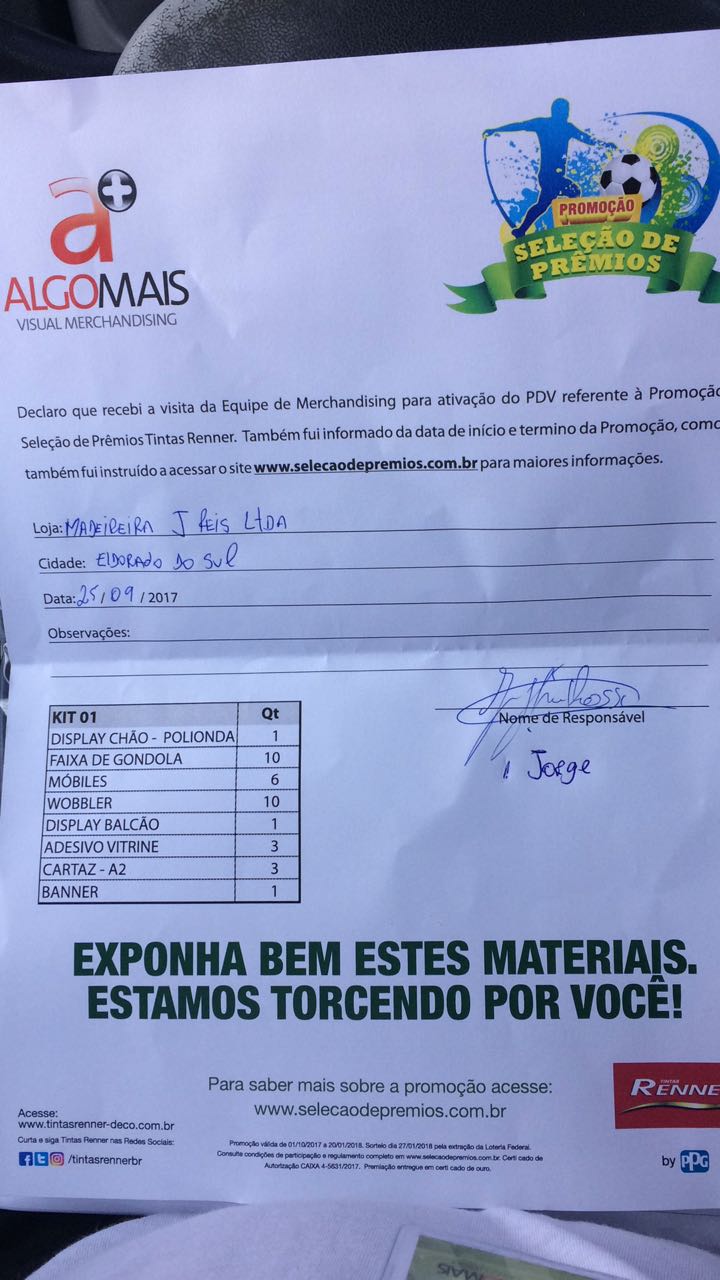 a+
ALGOMAIS
VISUAL MERCHANDISING
PROMOÇÃO
SELEÇÃO DE
PRÊMIOS
Declaro que recebi a visita da Equipe de Merchandising para ativação do PDV referente à Promoção
Seleção de Prêmios Tintas Renner. Também fui informado da data de início e termino da Promoção, como
também fui instruído a acessar o site www.selecaodepremios.com.br para maiores informações.
Loja: MADEIREIRA J REIS LTDA
Cidade: ELDORADO DO SUL
Data: 25/09/2017
Observações:
Nome de Responsável
Jorge
KIT 01 Qt
DISPLAY CHÃO - POLIONDA 1
FAIXA DE GONDOLA 10
MÓBILES 6
WOBBLER 10
DISPLAY BALCÃO 1
ADESIVO VITRINE 3
CARTAZ - A2 3
BANNER 1
EXPONHA BEM ESTES MATERIAIS.
ESTAMOS TORCENDO POR VOCÊ!
Para saber mais sobre a promoção acesse:
www.selecaodepremios.com.br
Acesse:
www.tintasrenner-deco.com.br
Curta e siga Tintas Renner nas Redes Sociais:
/tintasrennerbr
Promoção válida de 01/10/2017 a 20/01/2018. Sorteio dia 27/01/2018 pela extração da Loteria Federal.
Consulte condições de participação e regulamento completo em www.selecaodepremios.com.br. Certi cado de
Autorização CAIXA 4-5631/2017. Premiação entregue em certi cado de ouro.
TINTAS
RENNE
by PPG
MAIS